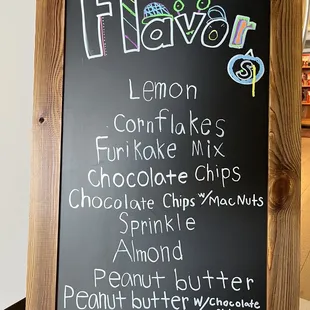 Flavor
s
Lemon
Cornflakes
Furikake Mix
Chocolate Chips
Chocolate Chips w/MacNuts
Sprinkle
Almond
Peanut butter
Peanut butter w/Chocolate